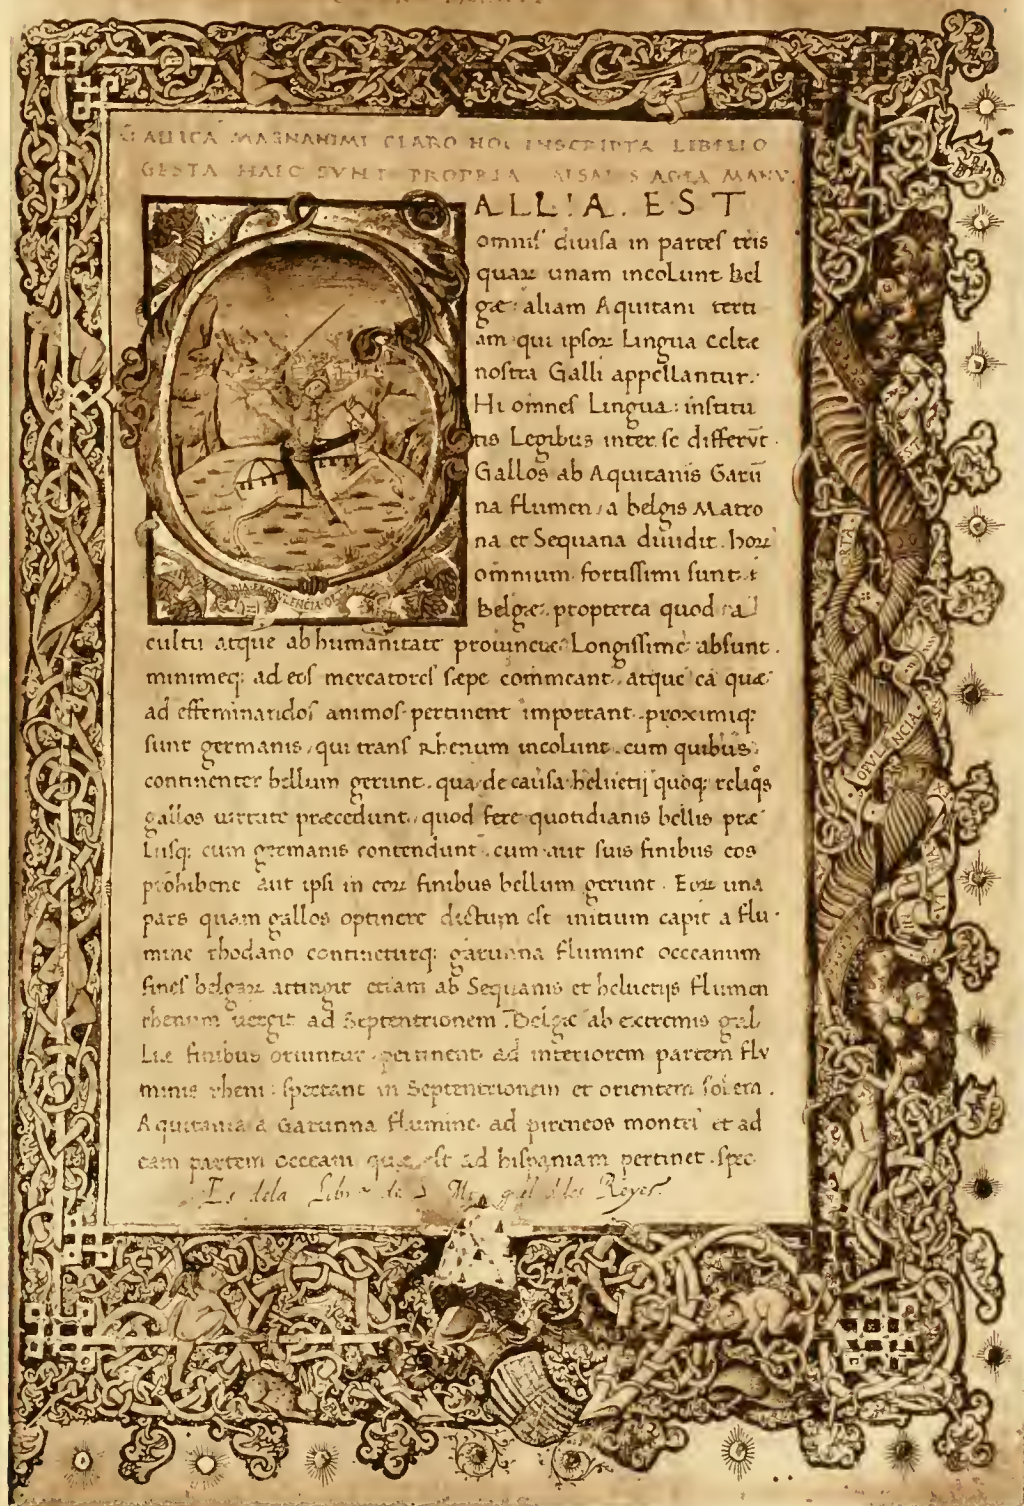 GALLICA MAGNANIMI CLARO HOC INSCRIPTA LIBELLO
GESTA HAEC SVNT PROPRIA MANV.
ALLIA. EST
omnis diuisa in partes tris
quaꝝ unam incolunt Bel
gæ: aliam Aquitani terti
am qui ipsoꝝ Lingua Celtæ
nostra Galli appellantur.
Hi omnes Lingua: institu
tis Legibus inter se differūt.
Gallos ab Aquitanis Garū
na flumen, a belgis Matro
na et Sequana diuidit. hoꝝ
omnium fortissimi sunt.
Belgæ: propterea quod a
cultu atque ab humanitate prouinciæ Longissime absunt.
minimeq; ad eos mercatores sæpe commeant, atque ea quæ
ad effeminandos animos pertinent important. proximiq;
sunt germanis, qui trans Rhenum incolunt. cum quibus
continenter bellum gerunt. qua de causa heluetij quoq; reliq̊s
gallos uirtute præcedunt, quod fere quotidianis bellis præ
Lijsq; cum germanis contendunt. cum aut suis finibus eos
prohibent aut ipsi in eoꝝ finibus bellum gerunt. Eoꝝ una
pars quam gallos optinere dictum est initium capit a flu
mine rhodano contineturq; garunna flumine occeanum
fines belgaꝝ attingit etiam ab Sequanis et heluetijs flumen
rhenum uergit ad Septentrionem. Belgæ ab extremis gal
Liæ finibus oriuntur. pertinent ad interiorem partem flu
minis rheni. spectant in Septentrionem et orientem solem.
Aquitania a Garunna flumine ad pireneos montes et ad
eam partem occeani quæ est ad hispaniam pertinet. spec
Es dela Libr.ª de S. Miguel delos Reyes.
OPVLENCIA